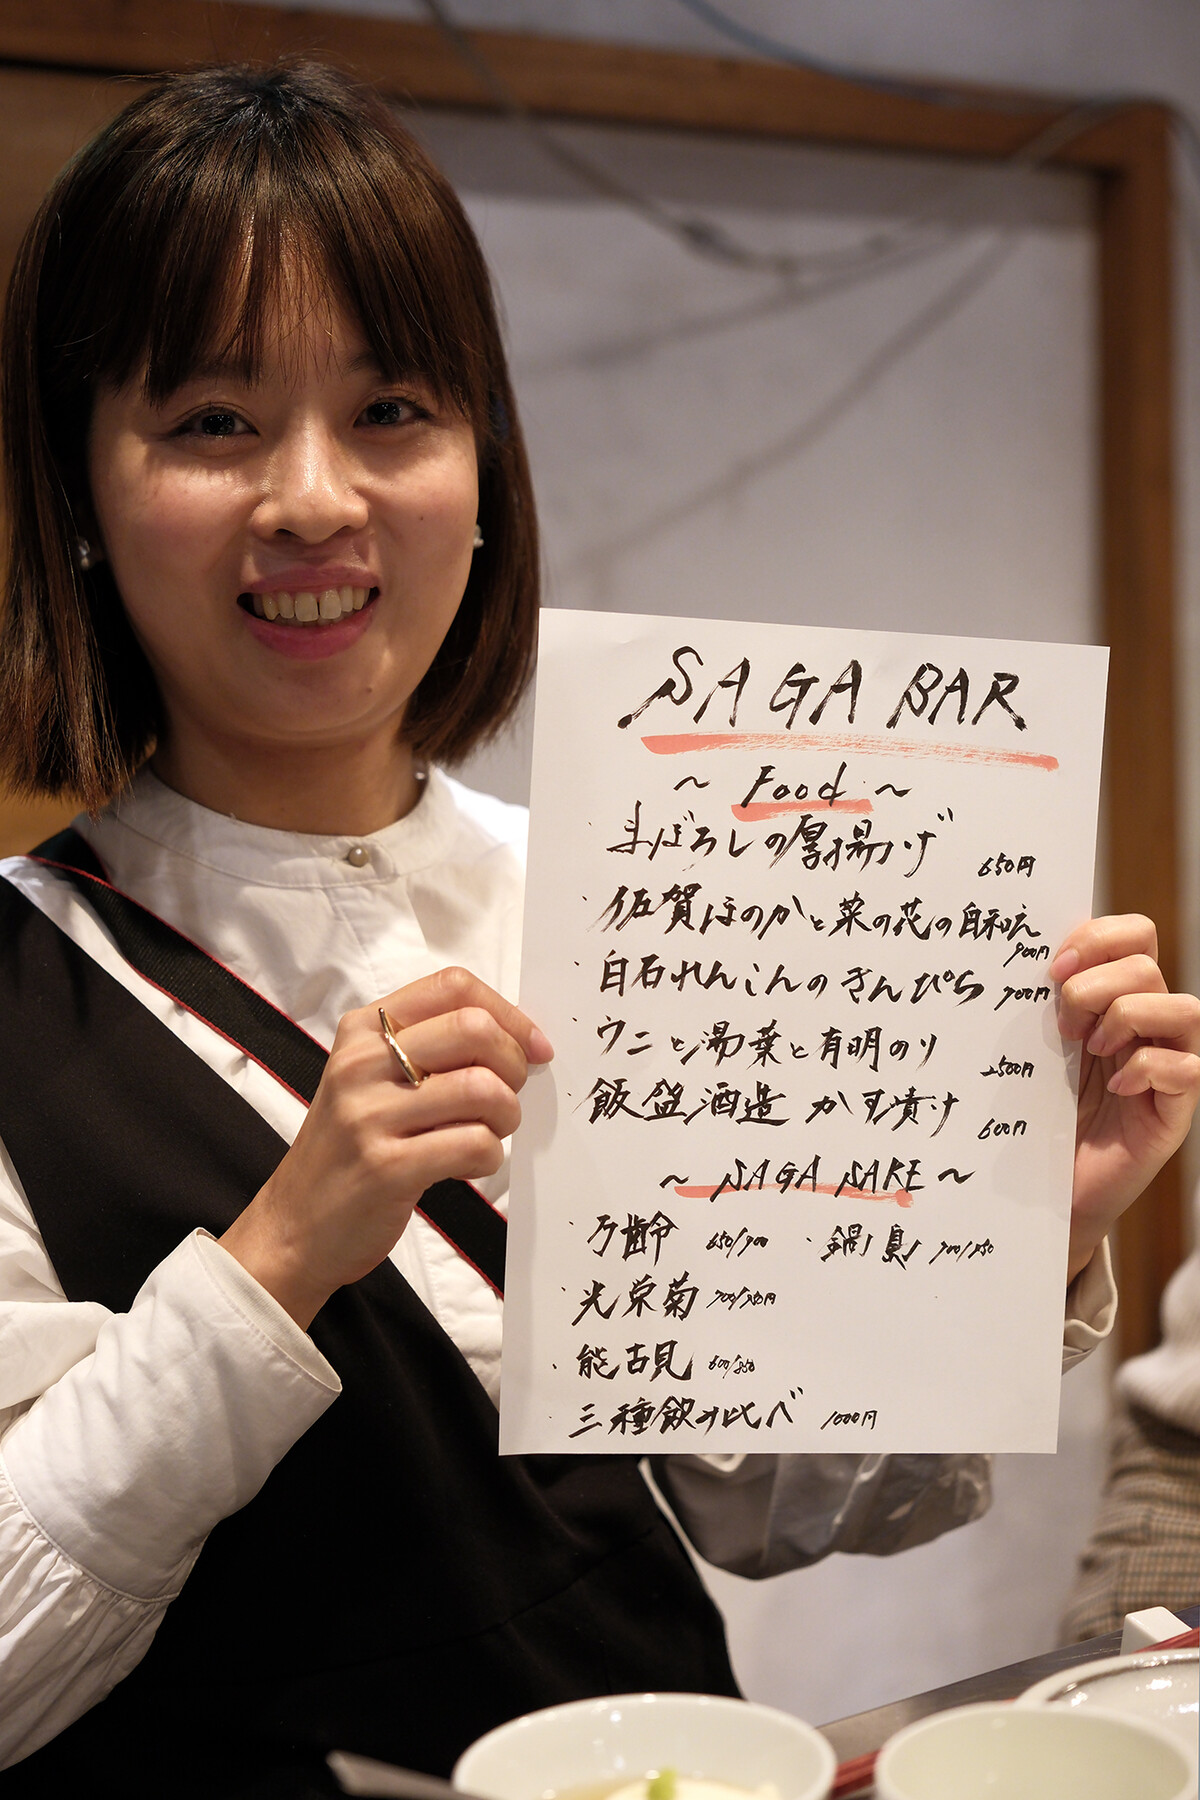 SAGA BAR
～ Food ～
・まぼろしの厚揚げ 650円
・佐賀ほのかと菜の花の白和え 900円
・白石れんこんのきんぴら 700円
・ウニと湯葉と有明のり 2500円
飯盛酒造 かす漬け 600円
～ SAGA SAKE ～
万齢 650/900 ・鍋島 900/950
・光栄菊 700/950円
・能古見 600/850
三種飲み比べ 1000円